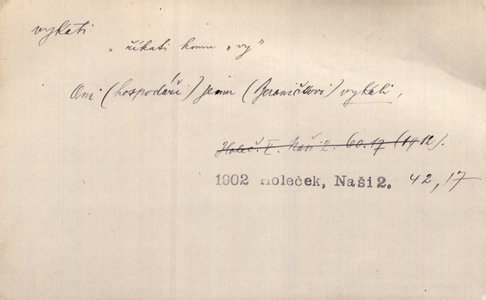 vykati
"říkati komu „vy"
Oni (hospodáři) jemu (Beraničkovi) vykali,
Holeč. I. Naši 2. 60.17 (1912).
1902 Holeček, Naši 2. 42,17